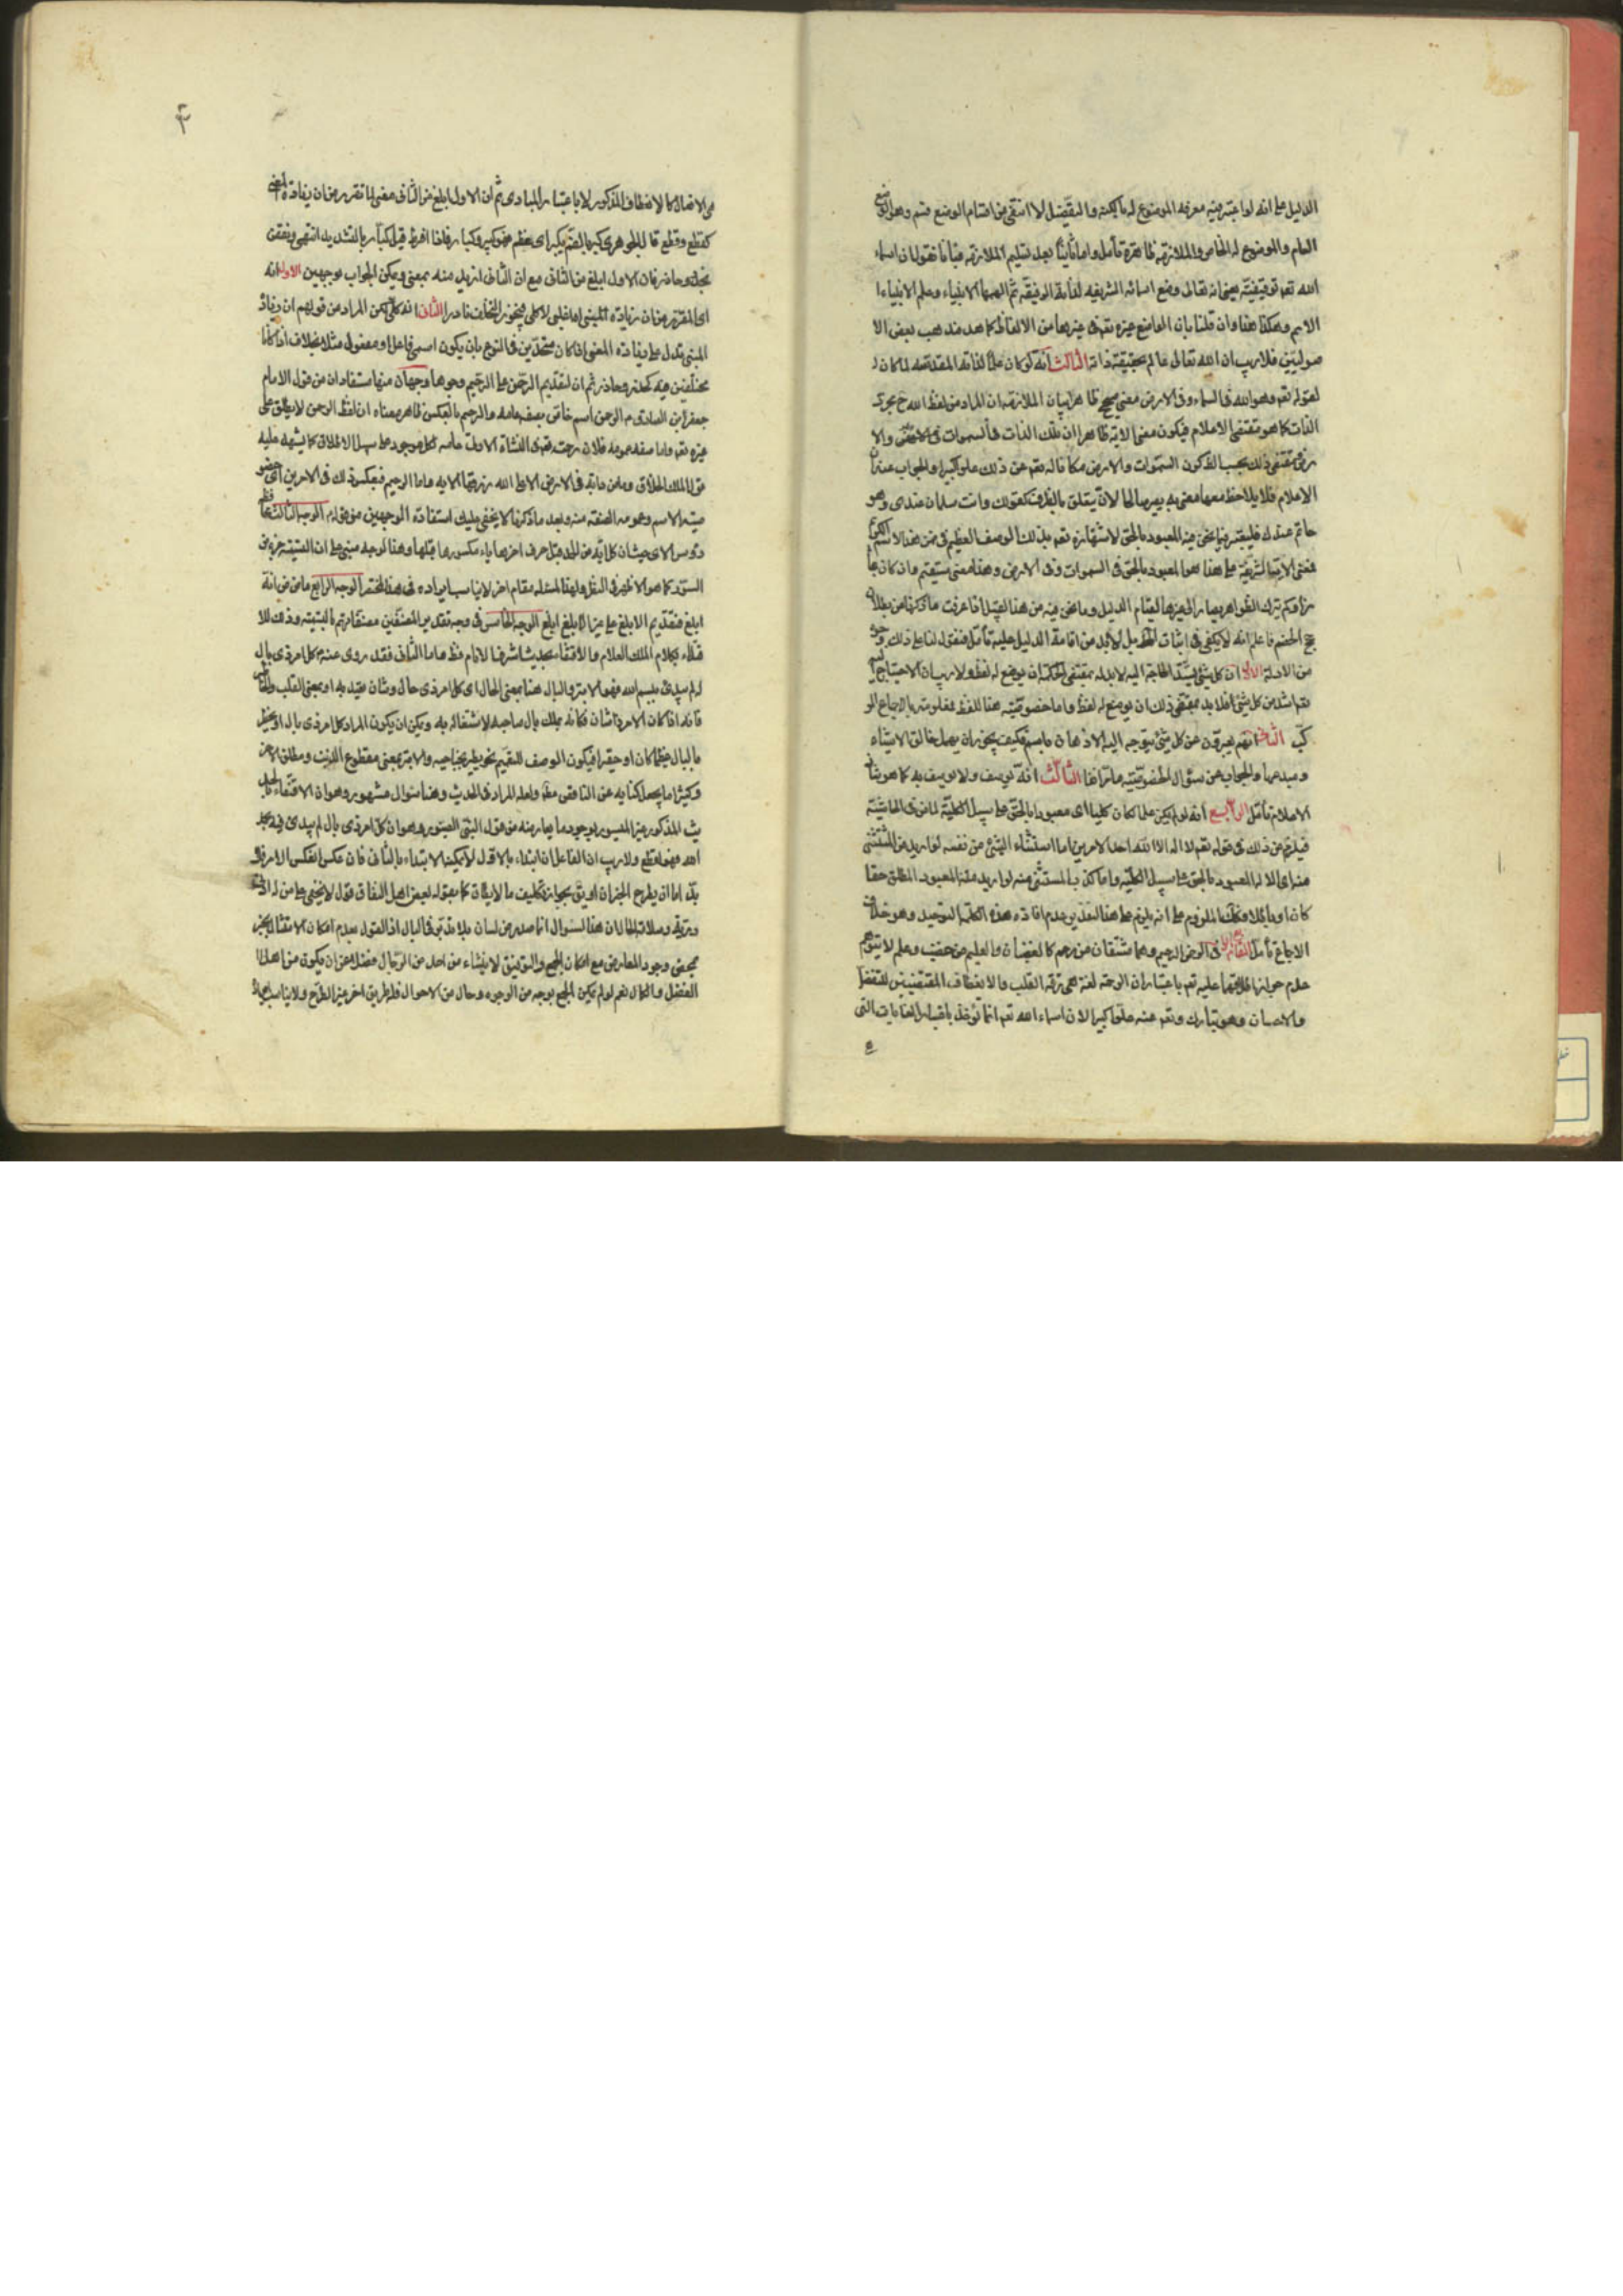 الدليل على انه لو اعتبر فيه معرفة الموضوع له بالكنه والتفصيل لانتفى من اقسام الوضع قسم وهو الوضع
العام والموضوع له الخاص والملازمة ظاهرة تأمل واما ثانيا بعد تسليم الملازمة فبانا نقول ان اسماء
الله تعم توقيفية يعني انه تعالى وضع اسمائه الشريفه لذاته ثم الهمها الانبياء وعلم الانبياء
الامم وهكذا هذا وان قلنا بان الواضع غيره تعم في غيرها من الالفاظ كما هو مذهب بعض الا
صوليين فلا ريب ان الله تعالى عالم بحقيقة ذاته الثالث انه لو كان علما لذاته المقدسه لما كان
لقوله تعم وهو الله في السماء وفي الارض معنى صحيح ظاهرا بيان الملازمة ان المراد من لفظ الله ح مجرد
الذات كما هو مقتضى الاعلام فيكون معنى الاية ظاهرا ان تلك الذات في السموات وفي الارض والا
رض مقتضى ذلك بحسب الظ كون السموات والارض مكانا له تعم عن ذلك علوا كبيرا والجواب عنه ان
الاعلام قد يلاحظ معها معنى به يصير صالحا لان يتعلق بالظرف كقولك وانت سلمان عندي وهو
حاتم عندك فليعتبر فيما نحن فيه المعبود بالحق لاشتهاره تعم بذلك الوصف العظيم في ضمن هذا الاسم الكريم
فمعنى الاية الشريفة على هذا هو المعبود بالحق في السموات وفي الارض وهذا معنى مستقيم وان كان مجا
زا وكم ترك الظواهر يصار الى غيرها لقيام الدليل وما نحن فيه من هذا القبيل اذا عرفت ما ذكرنا من بطلان
حجج الخصم فاعلم انه لا يكفي في اثبات المط بل لا بد من اقامة الدليل عليه تأمل فنقول لنا على ذلك وجوه
من الادلة الاول ان كل شئ يشتد الحاجة اليه لا بد له بمقتضى الحكمة ان يوضع له لفظ ولا ريب ان الاحتياج اليه
تعم اشد من كل شئ فلا بد بمقتضى ذلك ان يوضع له لفظ واما خصوصية هذا اللفظ فمعلومة بالاجماع المر
كب الثاني انهم يعبرون عن كل شئ يتوجه اليه الاذهان باسم فكيف يجوز ان يهمل خالق الاشياء
ومبدعها والجواب عن سؤال الخصوصية ما مر انفا الثالث انه يوصف ولا يوصف به كما هو شان
الاعلام تأمل الرابع انه لو لم يكن علما لكان كليا اي معبودا بالحق على سبيل الكلية لما مر في الحاشية
فيلزم من ذلك في قوله تعم لا اله الا الله احد الامرين اما استثناء الشئ من نفسه لو اريد من المستثنى
منه اي الاله المعبود بالحق على سبيل الكلية واما كذب المستثنى منه لو اريد منه المعبود المطلق حقا
كان او باطلا وكلاهما على انه يلزم على هذا التقدير عدم افادة هذه الكلمة التوحيد وهو خلاف
الاجماع تأمل في الرحمن الرحيم وهما مشتقان من رحم كالغضبان والعليم من غضب وعلم لا يتوهم
عدم جواز اطلاقهما عليه تعم باعتبار ان الرحمة لغة هي رقة القلب والانعطاف المقتضيتين للتفضل
والاحسان وهو تبارك وتعم عنه علوا كبيرا لان اسماء الله تعم انما تؤخذ باعتبار الغايات التي
۴
هي الافعال لا الانعطاف المذكور لا باعتبار المبادي ثم ان الاول ابلغ من الثاني معنى لما تقرر من ان زيادة
كقطع وقطع قال الجوهري كبر بالضم يكبر اي عظم فهو كبير وكبار فاذا افرط قيل كبار بالتشديد انتهى ونقض
بحذر وحاذر فان الاول ابلغ من الثاني مع ان الثاني ازيد منه بمعنى ويمكن الجواب بوجهين الاول انه
اي المقرر من ان زيادة المبنى اغلبي لا كلي فيجوز التخلف نادرا الثاني انه كلي لكن المراد من قولهم ان زيادة
المبنى تدل على زيادة المعنى اذا كان متحدين في النوع بان يكون اسمي فاعل او مفعول مثلا بخلاف اذا كانا
مختلفين فيه كحذر وحاذر ثم ان لتقديم الرحمن على الرحيم وجوها وجهان منها مستفادان من قول الامام
جعفر ابن الصادق م الرحمن اسم خاص بصفة عامة والرحيم بالعكس ظاهر معناه ان لفظ الرحمن لا يطلق على
غيره تعم واما صفه عمومه فلان رحمته تعم في النشأة الاولى عامه لكل موجود على سبيل الاطلاق كما يشهد عليه
قول الملك الخلاق وما من دابة في الارض الا على الله رزقها الايه واما الرحيم فبعكس ذلك في الامرين اي خصو
صية الاسم وعموم الصفة منه وبعد ما ذكرنا لا يخفى عليك استفادة الوجهين من قوله م الوجه الثالث
رؤس الاي حيث ان كل اية من الحمد قبل حرف اخرها ياء مكسور ما قبلها وهذا الوجه مبنى على ان التسمية جزء من
السورة كما هو الاظهر في النقل ولهذا المسئلة مقام اخر لا يناسب ايراده في هذا المختصر الوجه الرابع ما مر من انه
ابلغ فتقديم الابلغ على غير الابلغ ابلغ الوجه الخامس في وجه تصدير المصنفين مصنفاتهم بالتسمية وذلك للا
قتداء بكلام الملك العلام والاقتفاء بحديث اشرف الانام فظ واما الثاني فقد روى عنه كل امر ذي بال
لم يبدئ ببسم الله فهو الابتر والبال هنا بمعنى الحال اي كل امر ذي حال وشان يعتد به او بمعنى القلب
فانه اذا كان الامر ذا شان فكانه يملك بال صاحبه لاشتغاله به ويمكن ان يكون المراد كل امر ذي بال
بالبال عظيما كان او حقيرا فيكون الوصف للتعميم نحو يطير بجناحيه والابتر بمعنى مقطوع الذنب ومطلق
وكثيرا ما يجعل كناية عن الناقص ولعله المراد في الحديث وهنا سؤال مشهور وهو ان الاقتفاء بالحد
يث المذكور غير الميسور لوجود ما يعارضه من قول النبي وهو ان كل امر ذي بال لم يبدئ فيه بحمد
الله فهو اقطع ولا ريب ان الفاعل ان ابتداء بالاول لا يمكنه الابتداء بالثاني فان عكس انعكس الامر فلا
بد اما ان يطرح الخبران او يق بجواز تكليف ما لا يطاق كما يقوله بعض اهل النفاق قول لا يخفى على من له
ان هذا السؤال انما صدر من لسان بلا تدبر في البال اذ القول بعدم امكان الامتثال
بمحض وجود المعارض مع امكان الجمع والتوفيق لا ينشاء من احد من الرجال فضلا من ان يكون من اهل
الفضل والكمال نعم لو لم يمكن الجمع بوجه من الوجوه وحال من الاحوال فلا طريق اخر غير الطرح ولا يناسب